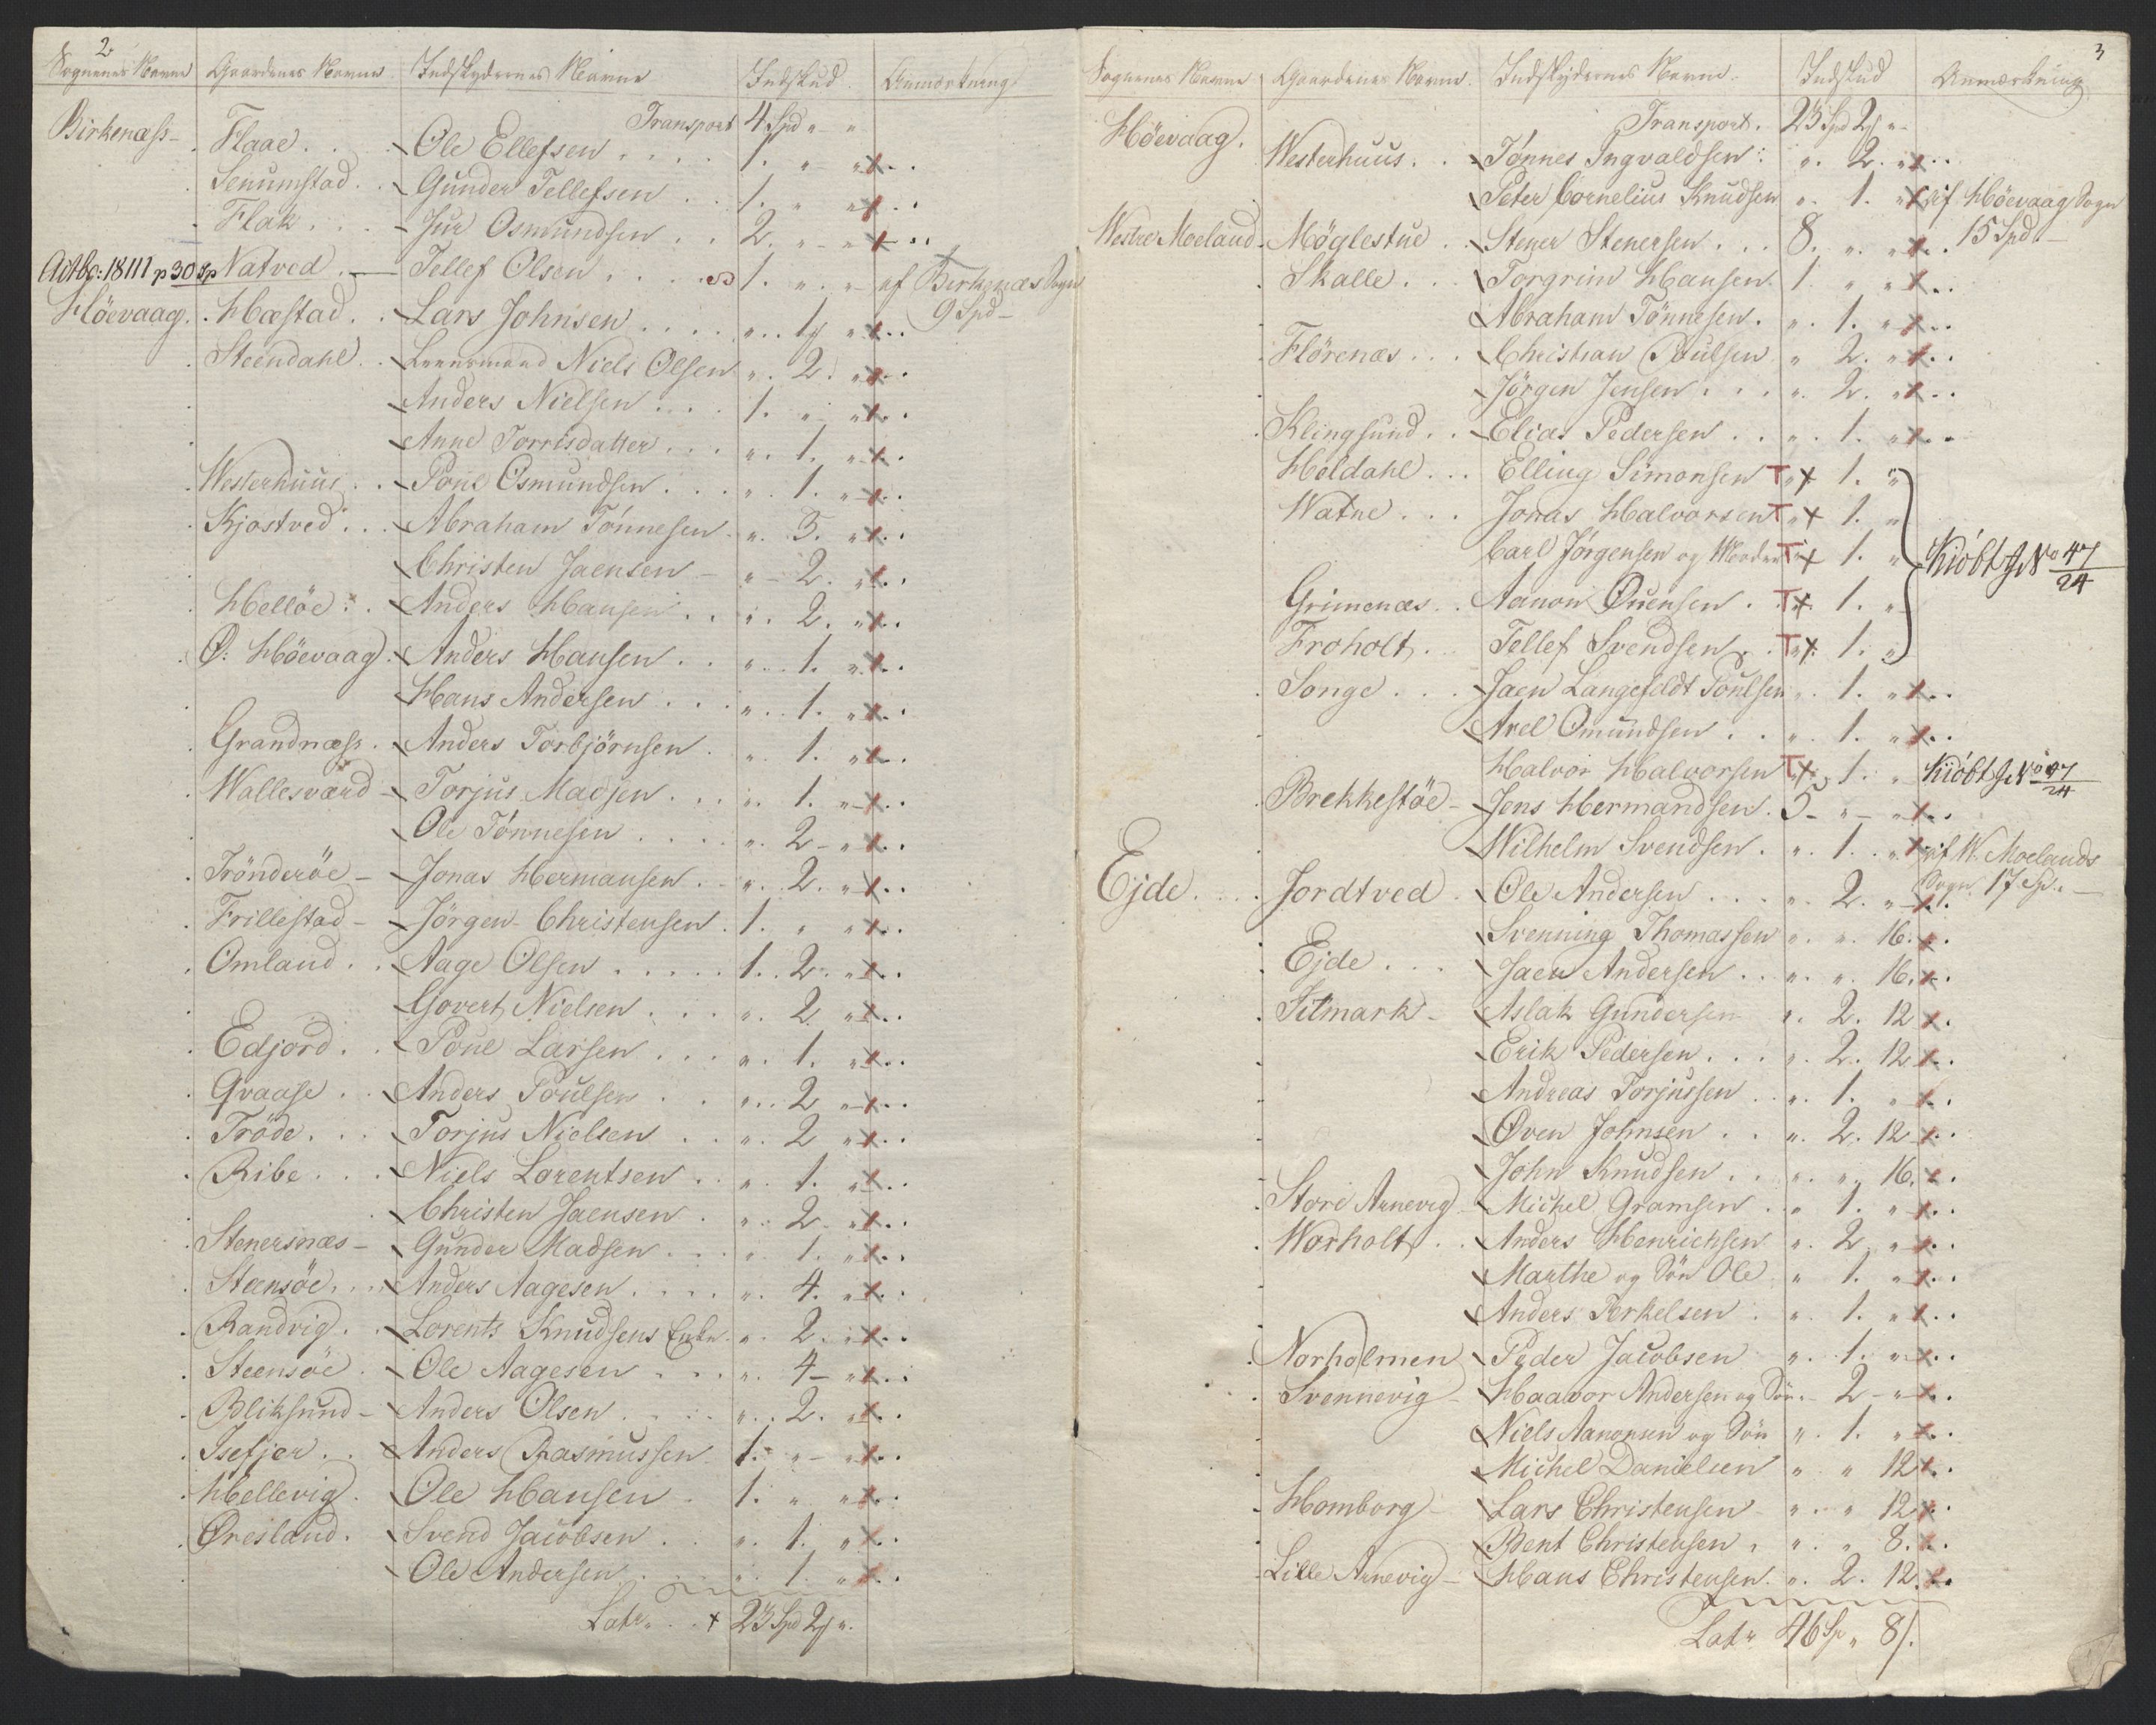 2
Sognenes Navne Gaardenes Navne Indskydernes Navne Indskud. Anmærkning.
Transport 4 Spd " "
Birkenæss - Flaae. . Ole Ellefsen . . . . 1. " "
Senumstad. . Gunder Tellefsen . . 1. " "
Flak . . . Jur Osmundsen . . 2. " "
Actbo: 18111 p 30 Sp Natved . Tellef Olsen . . . . 1. " " af Birkenæs Sogn
9 Spd -
Höevaag. . Hæstad. . Lars Johnsen . . . . " 1 "
Steendahl . Leensmand Niels Olsen " 2. "
Anders Nielsen . . . 1. " "
Anne Torrisdatter . . . " 1. "
Westerhuus . . Poul Osmundsen . . . " 1. "
Kjostved . . . Abraham Tönnesen " 3. "
Christen Jaensen - " 2. "
Hellöe . . Anders Hansen . . " 2. "
Ø: Höevaag . Anders Hansen . . " 1. "
Hans Andersen . . . " 1. "
Grandnæss . Anders Torbjörnsen . " 1. "
Wallesværd - Torjus Madsen . . . " 1. "
Ole Tönnesen . . . . " 2 - "
Trönderöe - Jonas Hermansen . . " 2. "
Frillestad - Jörgen Christensen . 1. " "
Omland . . Aage Olsen . . . . . 1. 2. "
Govert Nielsen . . . " 2 "
Edjord . . Poul Larsen . . . " 1. "
Qvaase . . Anders Poulsen . . " 2 "
Tröde . . . Torjus Nielsen . . " 2 "
Ribe . . . Niels Lorentsen . . " 1. "
Christen Jaensen . " 2 "
Stenersnæs - Gunder Madsen . . . " 1. "
Steensöe . . . Anders Aagesen . . . . " 4. "
Randvig . . Lorents Knudsens Enke . " 2. "
Steensöe . Ole Aagesen . . . " 4 - "
Bliksund - Anders Olsen . . . . " 2. "
Isefjer . . Anders Rasmussen 1. " "
Hellevig . Ole Hansen . 1. " "
Øresland . Svend Jacobsen . . " 1. "
Ole Andersen . . . " 1 "
Lat. . . + 23 Spd 2 ".
3
Sognenes Navne Gaardenes Navne. Indskydernes Navne. Indskud Anmærkning
Transport. 23 Spd 2 "
Höevaag. Westerhuus. . Tönnes Ingvaldsen : " 2. "
Peter Cornelius Knudsen " 1. " af Höevaag Sogn
15 Spd. -
Westre Moeland. Möglestue . . Stener Stenersen . . . 8. " "
Skalle . . . Torgrim Hansen. 1 " "
Abraham Tönnesen . " 1. "
Flörenæs . . . Christian Poulsen " 2. "
Jörgen Jensen . . . " 2. "
Klingsund . . Elias Pedersen . . " 1. "
Holdahl . . . Elling Simonsen T " + 1. "
Watne . . . Jonas Halvorsen T " + 1. "
Carl Jörgensen og T " + 1. " Kiöbt J No 47/24
Grimenæs . . Aanon Ouensen . T " + 1. "
Froholt . . Tellef Svendsen . T " + 1. "
Songe . . . Jaen Langefeldt Poulsen " 1. "
Axel Omundsen . . " 1. "
Halvor Halvorsen T " + 1. " Kiöbt J No 47/24
Brekkestöe - Jens Hermandsen . 5 - " - "
Wilhelm Svendsen . " 1. " af W. Moelands
Sogn 17 Sp. -
Ejde . . . . Jordtved . Ole Andersen . . . " 2. "
Svenning Thomassen " " 16.
Ejde . . . Jaen Andersen . . " " 16.
Titmark - Aslak Gundersen " 2. 12
Erik Pedersen . . . " 2. 12
Andreas Torjussen . . " 1. "
Øven Johnsen . . " 2. 12
John Knudsen . . " " 16.
Store Arnevig - Michel Gramsen . " 1. "
Worholt . . Anders Henrichsen " 2. "
Marthe og Sön Ole " 1. "
Anders Terkelsen . " 1. "
Norholmen Peder Jacobsen " 1. "
Svennevig - Haavor Andersen og Sön - 2 - "
Niels Aanonsen og Sön " 1. "
Michel Danielsen " " 12
Homborg - Lars Christensen " " 12
Bent Christensen . " " 8.
Lille Arnevig - Hans Christensen. " 2. 12.
Lat. 46 Sp " 8/.